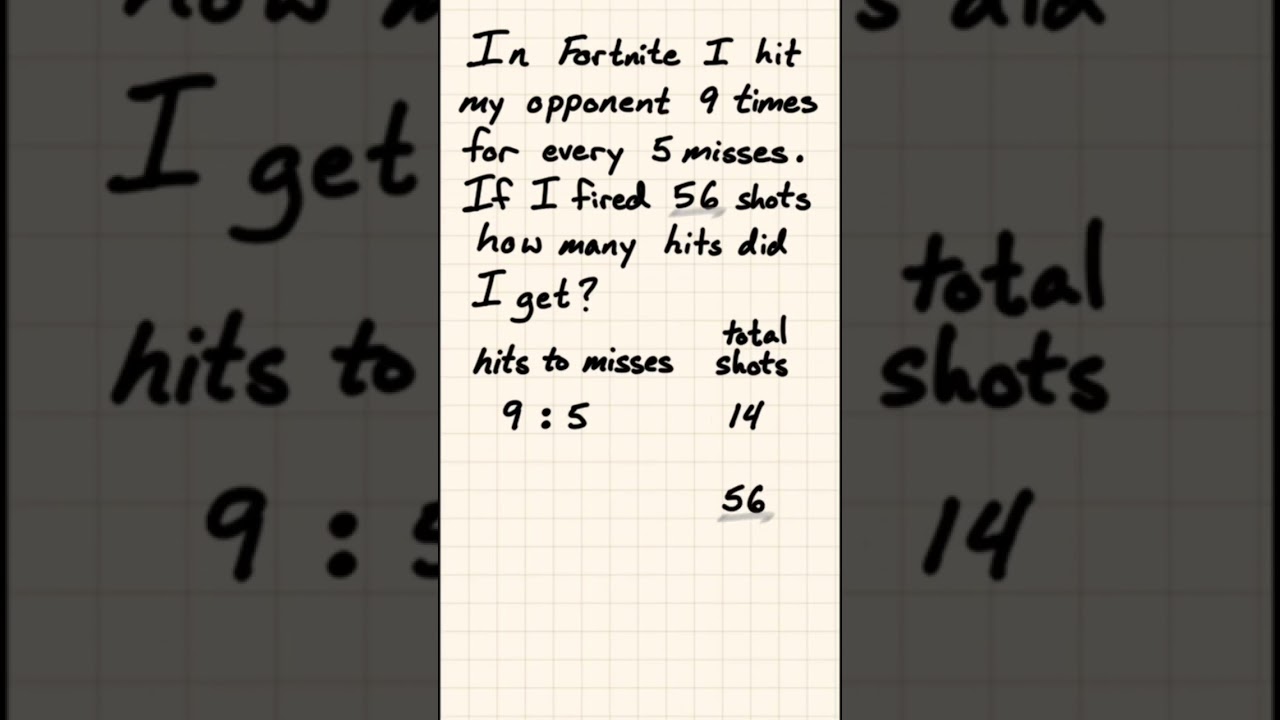 In Fortnite I hit
my opponent 9 times
for every 5 misses.
If I fired 56 shots
how many hits did
I get?
total
hits to misses shots
9 : 5 14
56